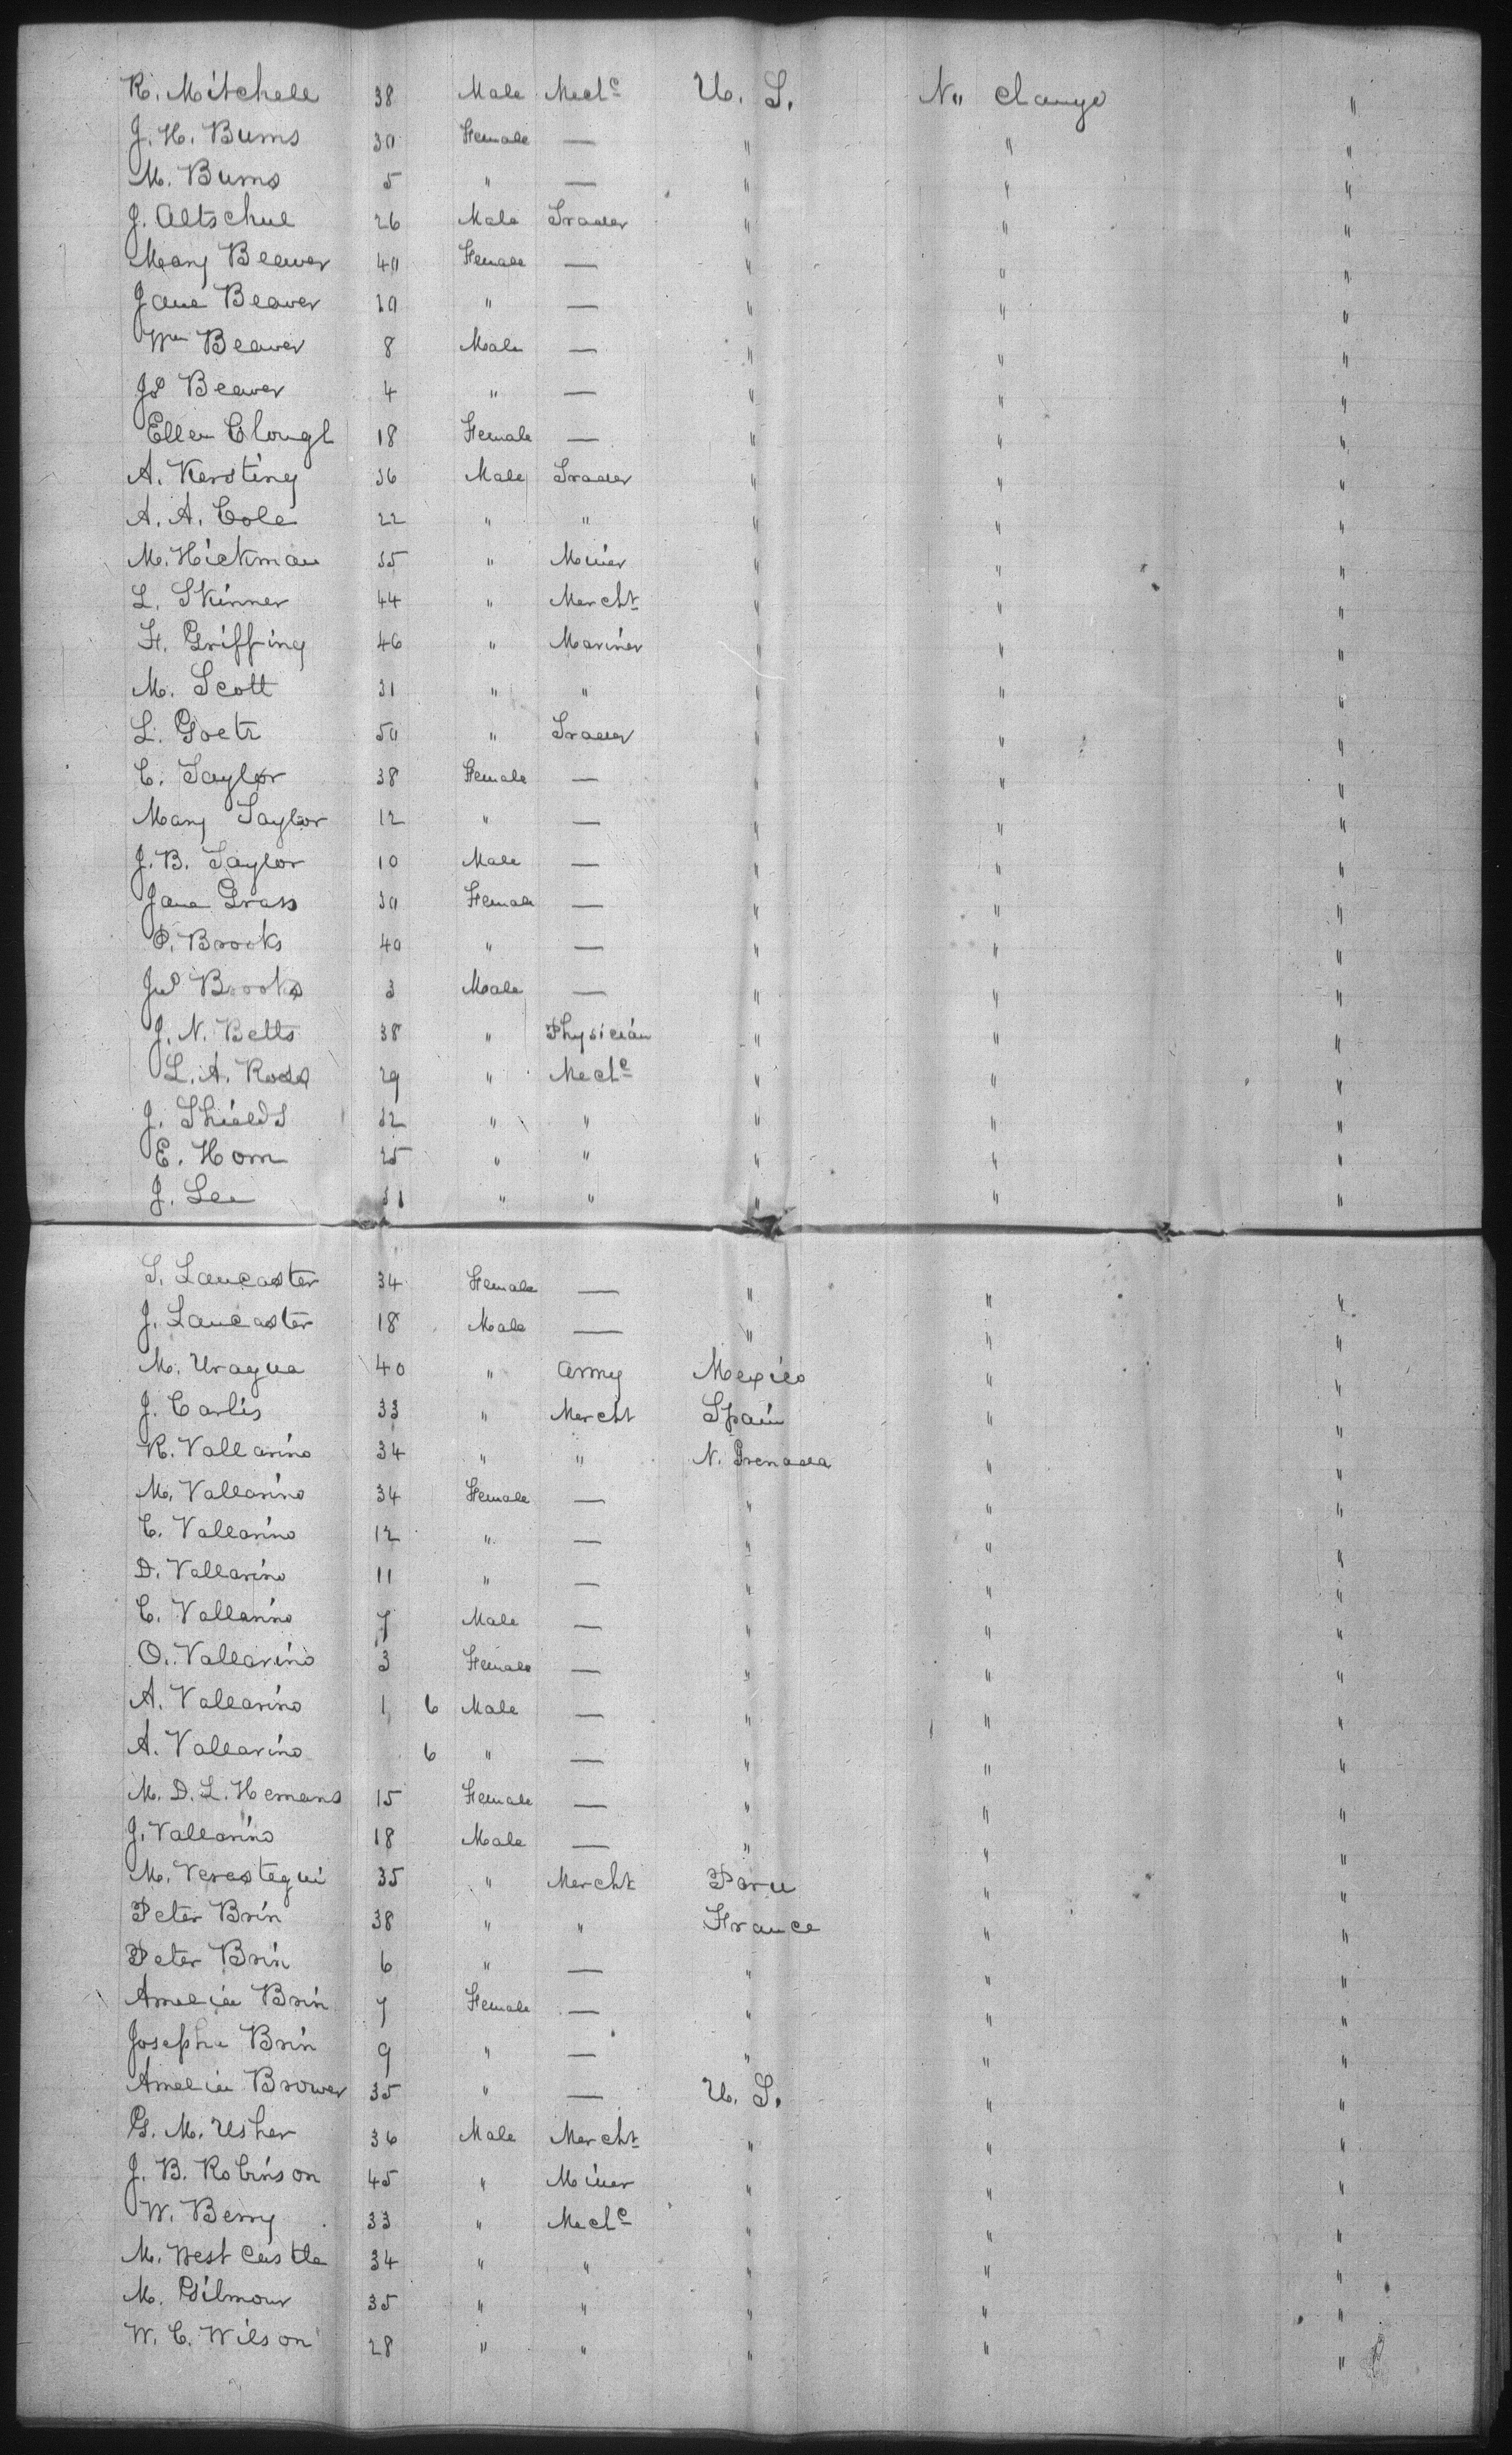 R. Mitchell 38 Male Mechc U. S. No change "
J. H. Burns 30 Female — " " "
M. Burns 5 " — " " "
J. Altschul 26 Male Trader " " "
Mary Beaver 40 Female — " " "
Jane Beaver 20 " — " " "
Wm Beaver 8 Male — " " "
Jo Beaver 4 " — " " "
Ellen Clough 18 Female — " " "
A. Kersting 36 Male Trader " " "
A. A. Cole 22 " " " " "
M. Hickman 35 " Miner " " "
L. Skinner 44 " Mercht " " "
F. Griffing 46 " Mariner " " "
M. Scott 31 " " " " "
L. Goetz 50 " Trader " " "
C. Taylor 38 Female — " " "
Mary Taylor 12 " — " " "
J. B. Taylor 10 Male — " " "
Jane Grass 30 Female — " " "
P. Brooks 40 " — " " "
Jno Brooks 3 Male — " " "
J. N. Betts 38 " Physician " " "
L. A. Ross 29 " Mechc " " "
J. Shields 32 " " " " "
E. Horn 25 " " " " "
J. Lee 31 " " " " "
S. Lancaster 34 Female — " " "
J. Lancaster 18 Male — " " "
M. Uragua 40 " Army Mexico " "
J. Carlis 33 " Mercht Spain " "
R. Vallarino 34 " " N. Grenada " "
M. Vallarino 34 Female — " " "
C. Vallarino 12 " — " " "
D. Vallarino 11 " — " " "
C. Vallarino 7 Male — " " "
O. Vallarino 3 Female — " " "
A. Vallarino 1 6 Male — " " "
A. Vallarino 6 " — " " "
M. D. L. Hemans 15 Female — " " "
J. Vallarino 18 Male — " " "
M. Verastegui 35 " Mercht Peru " "
Peter Brin 38 " " France " "
Peter Brin 6 " — " " "
Amelia Brin 7 Female — " " "
Josepha Brin 9 " — " " "
Amelia Brower 35 " — U. S. " "
G. M. Usher 36 Male Mercht " " "
J. B. Robinson 45 " Miner " " "
W. Berry 33 " Mechc " " "
M. West Castle 34 " " " " "
M. Gilmour 35 " " " " "
W. C. Wilson 28 " " " " "